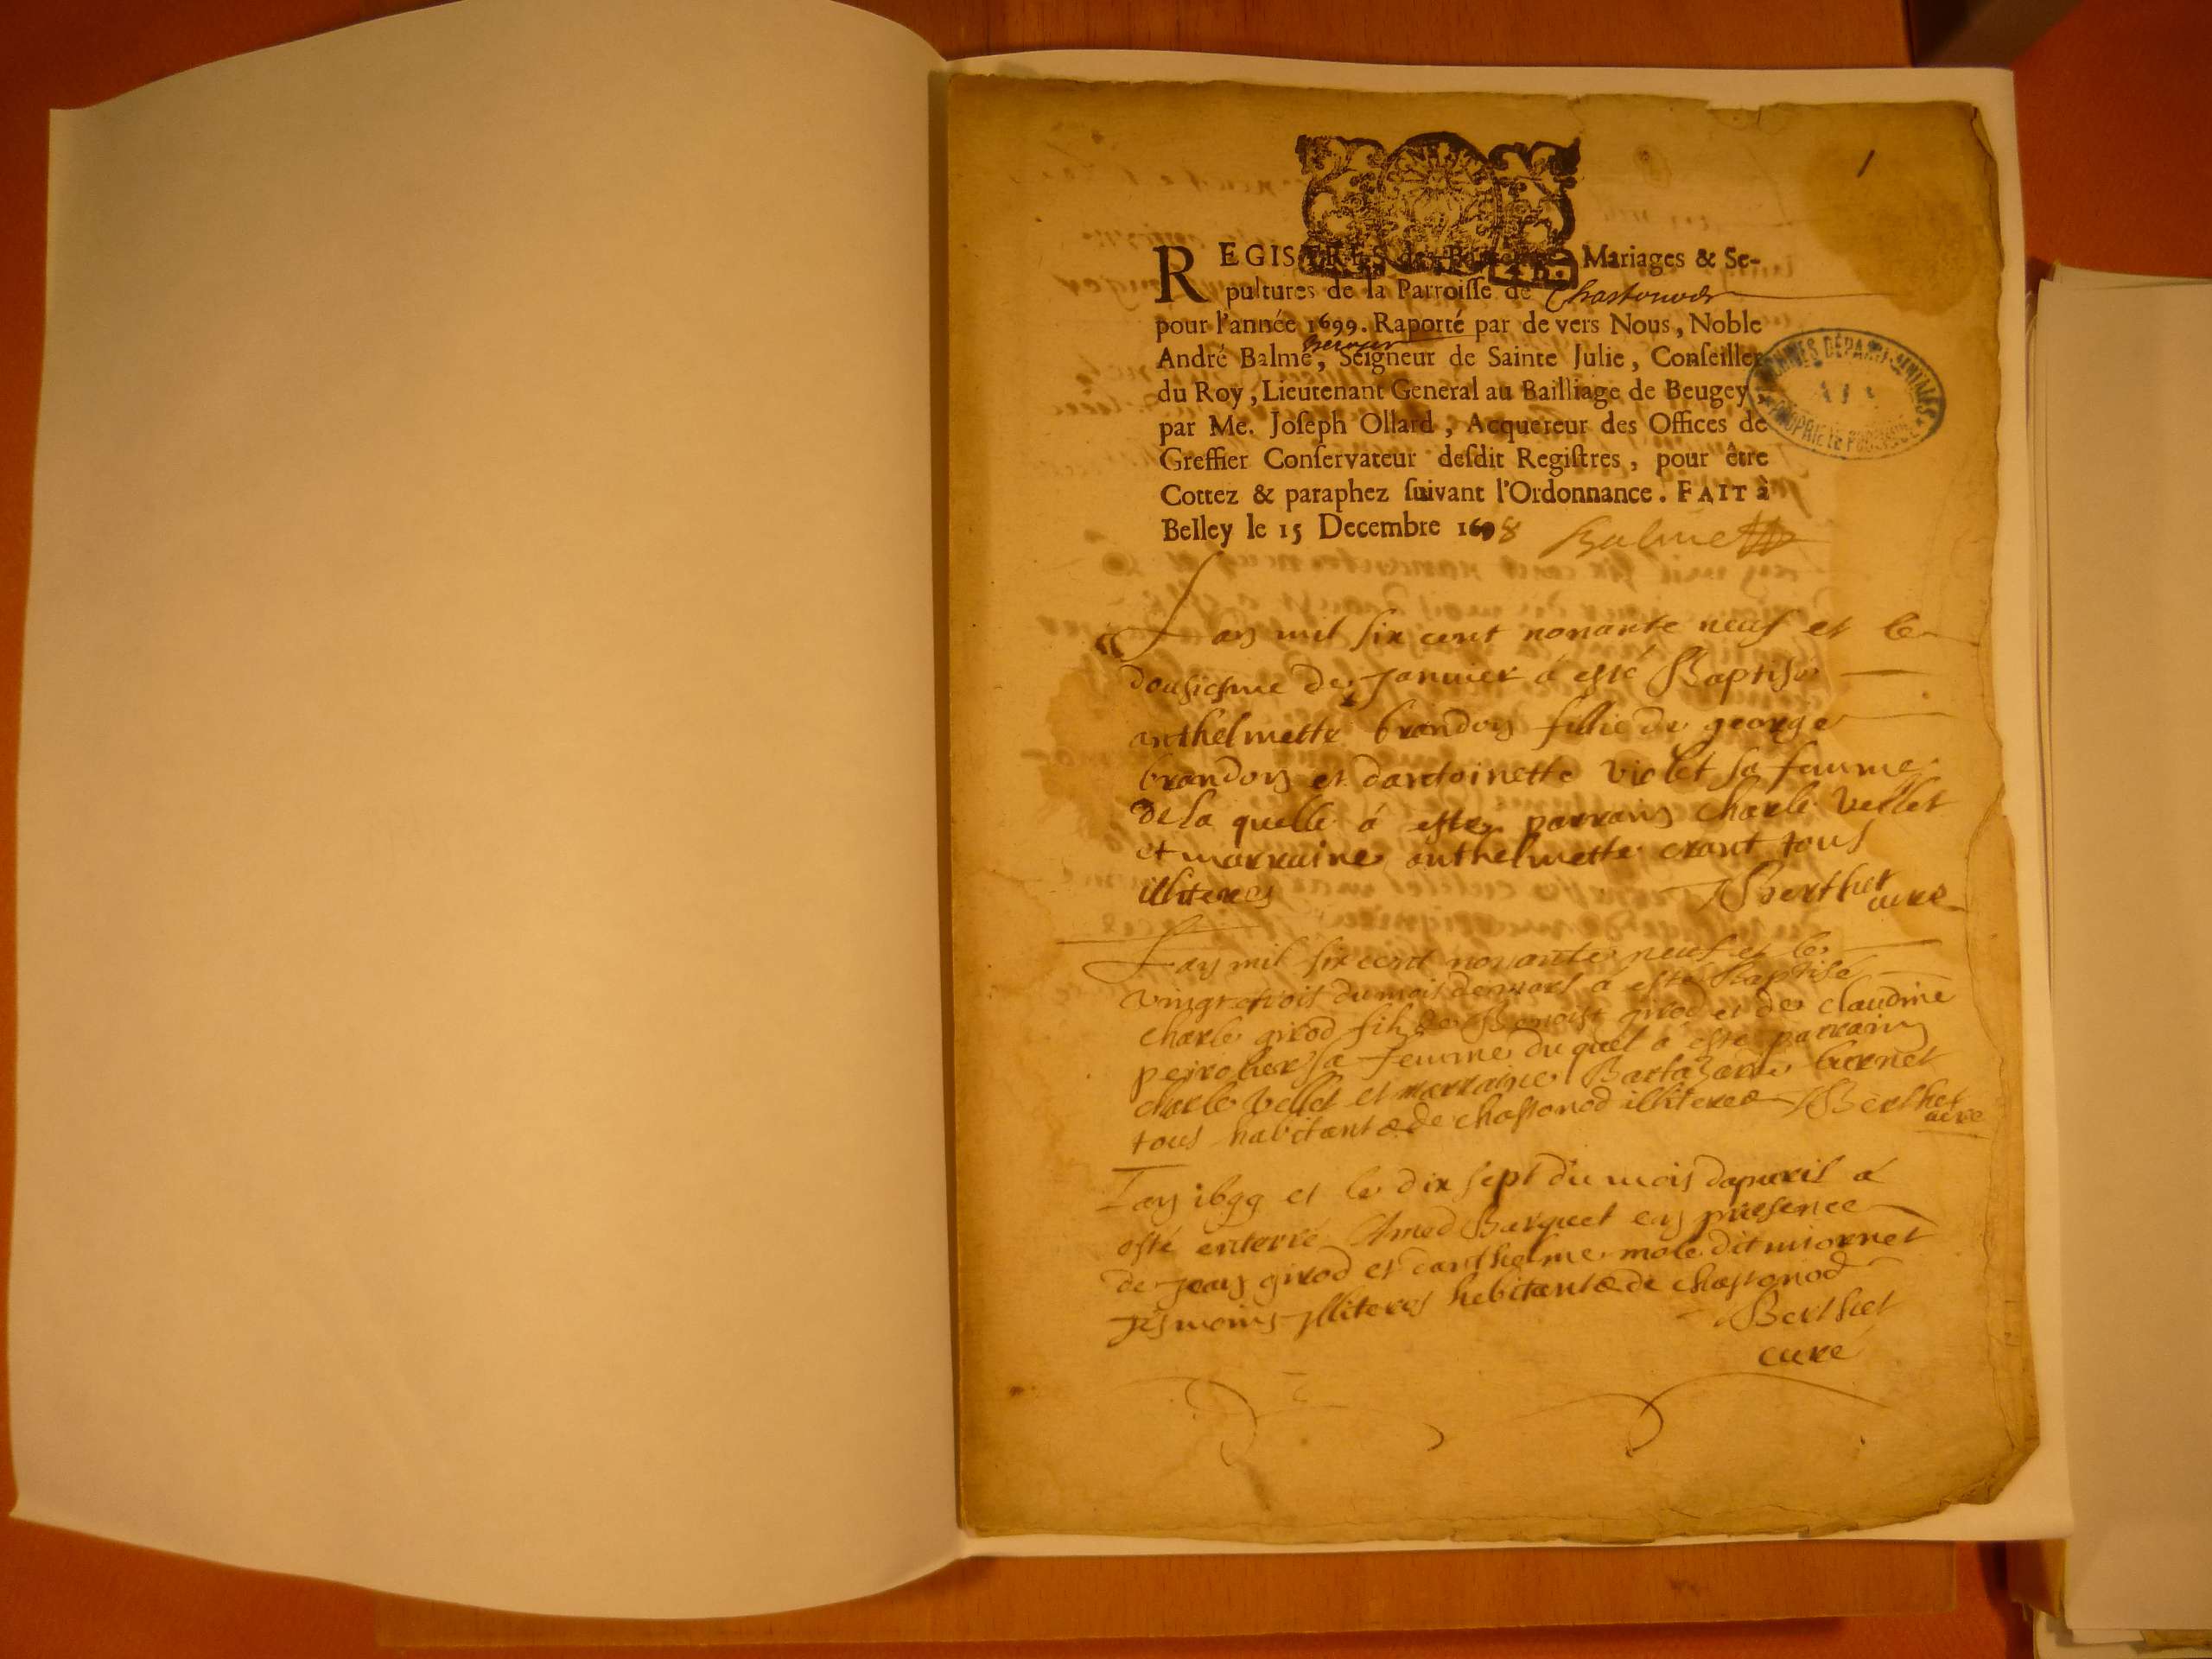 1
REGISTRES des Baptemes Mariages & Se-
pultures de la Parroisse de Chastonod
pour l'année 1699. Raporté par de vers Nous, Noble
André Balme, Seigneur de Sainte Julie, Conseiller
du Roy, Lieutenant General au Bailliage de Beugey,
par Me. Joseph Ollard, Acquereur des Offices de
Greffier Conservateur desdit Registres, pour être
Cottez & paraphez suivant l'Ordonnance. FAIT à
Belley le 15 Decembre 1698 Balme
ARCHIVES DÉPARTEMENTALES
PROPRIÉTÉ PUBLIQUE
Lan mil six cent nonante neuf et le
dousiesme de Janvier a esté Baptise
anthelmette brandon fillie de george
brandon et dantoinette violet sa femme
de la quelle á este parrain charle vellet
et marraine anthelmette crant tous
illiteres Berthet
curé
Lan mil six cent nonante neuf et le
vingt trois du mois de mars a esté Baptisé
charle girod fils de Benoist girod et de claudine
peirolier sa femme du quel a esté parrain
charle vellet et marraine burnet
tous habitant de chastonod illiteres Berthet
curé
Lan 1699 et le dix sept du mois dapvril á
esté enterré Amed Barquet en presence
de Jean girod et danthelme mole dit miornet
tesmoins Jlliteres habitant de chastonod
Berthet
curé